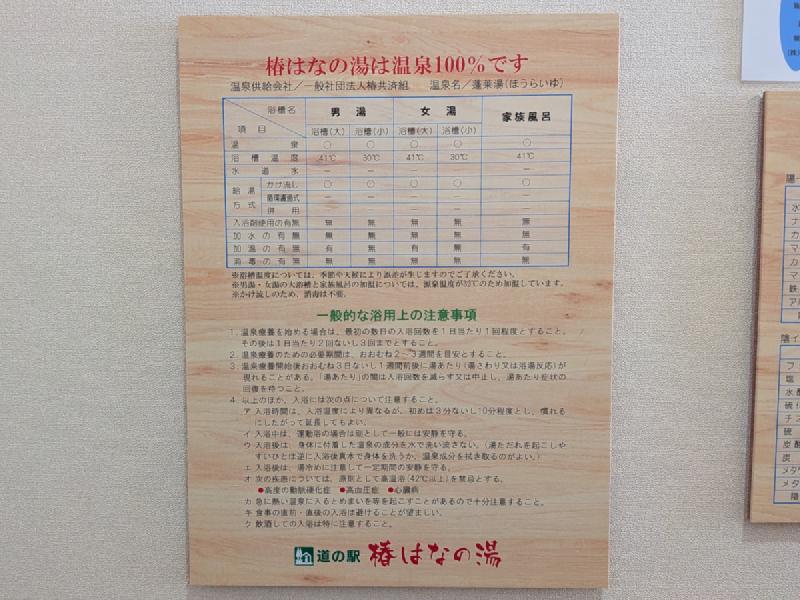 椿はなの湯は温泉100%です
温泉供給会社／一般社団法人椿共済組　温泉名／蓬莱湯(ほうらいゆ)
浴槽名 男湯 女湯 家族風呂
項目 浴槽(大) 浴槽(小) 浴槽(大) 浴槽(小)
温泉 ○ ○ ○ ○ ○
浴槽温度 41℃ 30℃ 41℃ 30℃ 41℃
水道水 － － － － －
給湯方式 かけ流し ○ ○ ○ ○ ○
循環濾過式 － － － － －
併用 － － － － －
入浴剤使用の有無 無 無 無 無 無
加水の有無 無 無 無 無 無
加温の有無 有 無 有 無 有
消毒の有無 無 無 無 無 無
※浴槽温度については、季節や天候により誤差が生じますのでご了承ください。
※男湯・女湯の大浴槽と家族風呂の加温については、源泉温度が32℃のため加温しています。
※かけ流しのため、消毒は不要。
一般的な浴用上の注意事項
1. 温泉療養を始める場合は、最初の数日の入浴回数を1日当たり1回程度とすること。
その後は1日当たり2回ないし3回までとすること。
2. 温泉療養のための必要期間は、おおむね2～3週間を目安とすること。
3. 温泉療養開始後おおむね3日ないし1週間前後に湯あたり(湯さわり又は浴湯反応)が
現れることがある。「湯あたり」の間は入浴回数を減らす又は中止し、湯あたり症状の
回復を待つこと。
4. 以上のほか、入浴には次の点について注意すること。
ア 入浴時間は、入浴温度により異なるが、初めは3分ないし10分程度とし、慣れる
にしたがって延長してもよい。
イ 入浴中は、運動浴の場合は別として一般には安静を守る。
ウ 入浴後は、身体に付着した温泉の成分を水で洗い流さない。(湯ただれを起こしや
すいひとは逆に入浴後真水で身体を洗うか、温泉成分を拭き取るのがよい。)
エ 入浴後は、湯冷めに注意して一定期間の安静を守る。
オ 次の疾患については、原則として高温浴(42℃以上)を禁忌とする。
●高度の動脈硬化症 ●高血圧症 ●心臓病
カ 急に熱い温泉に入るとめまいを等を起こすことがあるので十分注意すること。
キ 食事の直前・直後の入浴は避けることが望ましい。
ク 飲酒しての入浴は特に注意すること。
道の駅 椿はなの湯